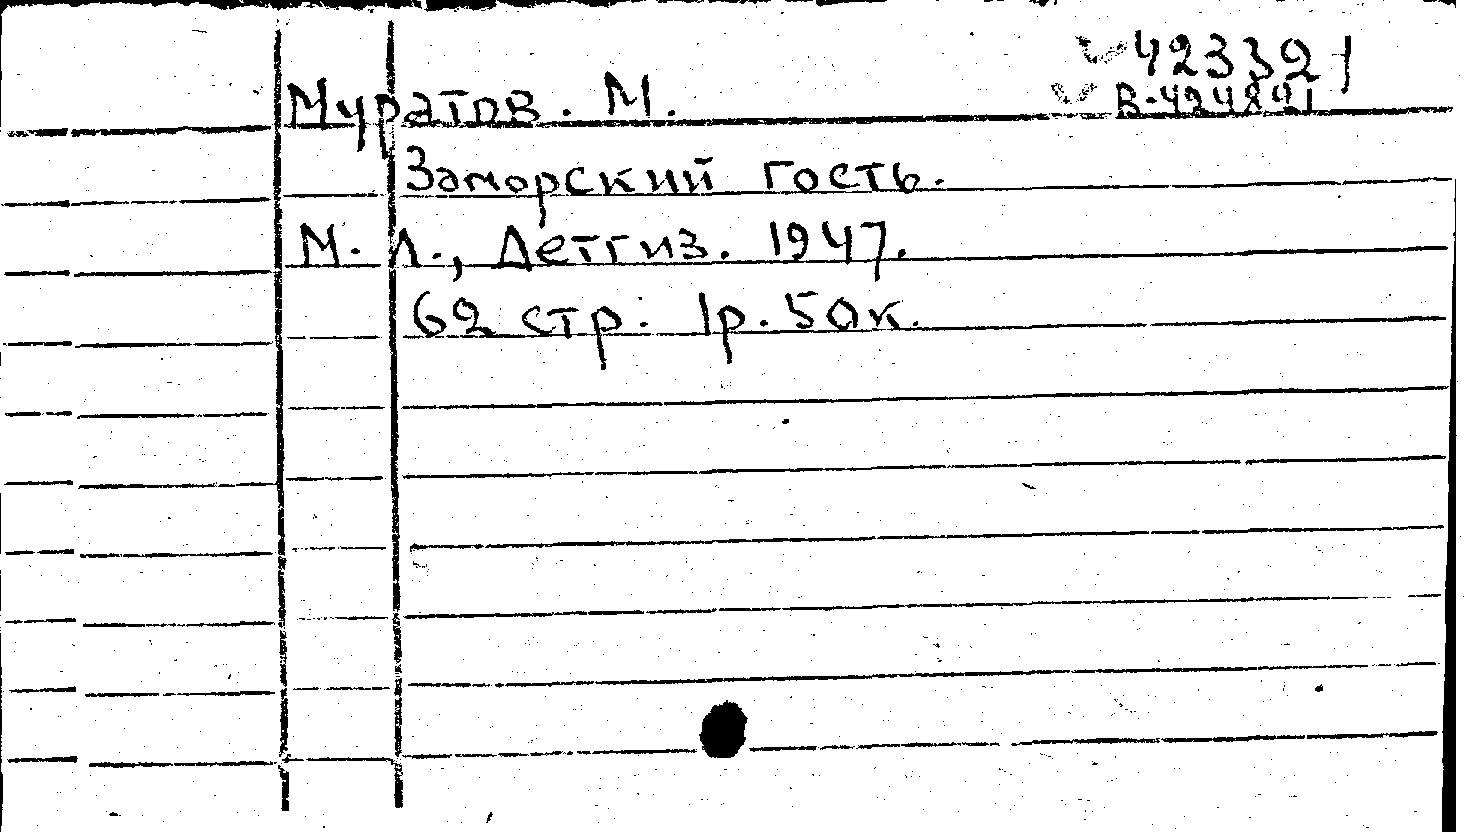 423321
В-424891
Муратов. М.
Заморский гость.
М. Л., Детгиз. 1947.
62 стр. 1р. 50к.